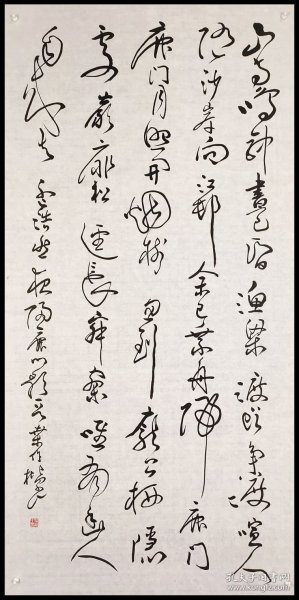 山寺鳴鐘晝已昏漁梁渡頭爭渡喧人
隨沙岸向江村余已乘舟歸鹿門
鹿門月照開煙樹忽到龐公栖隱
處巖扉松徑長寂寥唯有幽人
自來去 孟浩然夜歸鹿門歌
孔夫子旧书网
www.kongfz.com